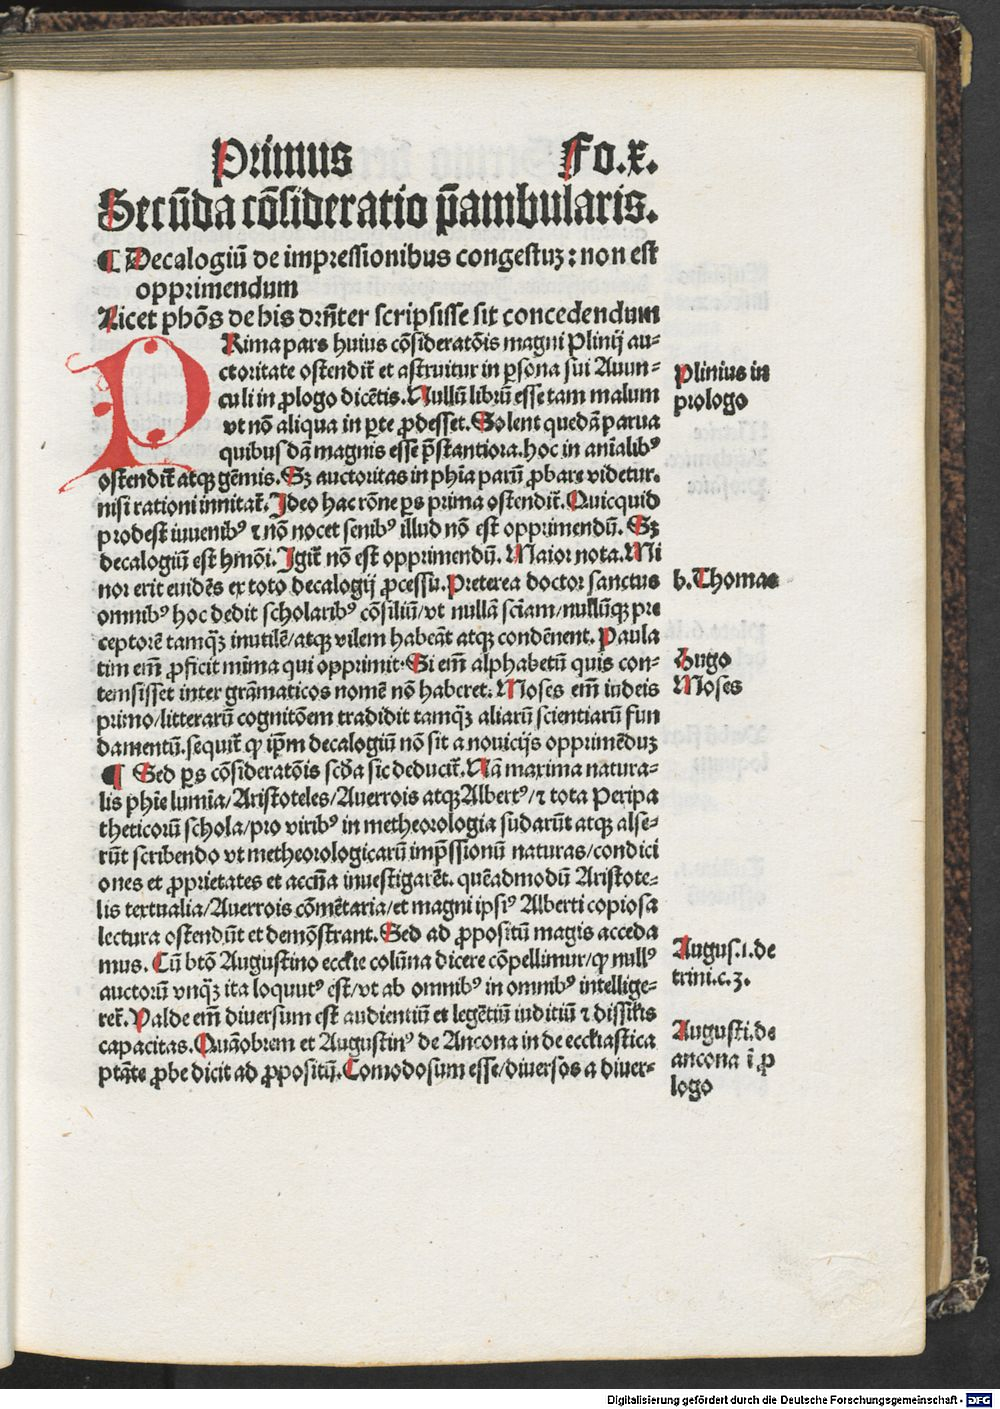 Primus Fo.x.
Secūda cōsideratio p̄ambularis.
¶ Decalogiū de impressionibus congestuꝫ : non est
opprimendum
Licet phōs de his dn̄ter scripsisse sit concedendum
PRima pars huius cōsideratōis magni Plinij au-
ctoritate ostendit̄ et astruitur in ꝑsona sui Auun-
culi in ꝓlogo dicētis. Nullū librū esse tam malum
vt nō aliqua in ꝑte ꝓdesset. Solent quedā parua
quibusdā magnis esse p̄stantiora. hoc in aīalibꝰ
ostendit̄ atqꝫ gēmis. Sꝫ auctoritas in phīa parū ꝓbare videtur.
nisi rationi innitat̄. Ideo hac rōne ꝑs prima ostendit̄. Quicquid
prodest iuuenibꝰ ⁊ nō nocet senibꝰ illud nō est opprimendū. Sꝫ
decalogiū est hmōi. Igit̄ nō est opprimendū. Maior nota. Mi
nor erit euidēs ex toto decalogij ꝓcessu. Preterea doctor sanctus
omnibꝰ hoc dedit scholaribꝰ cōsiliū/vt nullā sciam/nullūqꝫ pre
ceptorē tamqꝫ̄ inutilē/atqꝫ vilem habeāt atqꝫ condēnent. Paula
tim em̄ ꝓficit mīma qui opprimit. Si em̄ alphabetū quis con-
temsisset inter grāmaticos nomē nō haberet. Moses em̄ iudeis
primo/litterarū cognitōem tradidit tamqꝫ̄ aliarū scientiarū fun
damentū. sequit̄ ꝙ ip̄m decalogiū nō sit a nouicijs opprimēduꝫ
¶ Sed ꝑs cōsideratōis scd̄a sic deducit̄. Nā maxima natura-
lis phie lumīa/Aristoteles/Auerrois atqꝫ Albertꝰ/⁊ tota Peripa
theticorū schola/pro viribꝰ in metheorologia sudarūt atqꝫ alse-
rūt scribendo vt metheorologicarū imp̄ssionū naturas/condici
ones et ꝓprietates et accn̄a inuestigarēt. quēadmodū Aristote-
lis textualia/Auerrois cōmētaria/et magni ipsiꝰ Alberti copiosa
lectura ostendūt et demōstrant. Sed ad ꝓpositū magis acceda
mus. Cū btō Augustino ecclie colūna dicere cōpellimur/ꝙ nullꝰ
auctorū vnqꝫ̄ ita loquutꝰ est/vt ab omnibꝰ in omnibꝰ intellige-
ret̄. Valde em̄ diuersum est audientiū et legētiū iuditiū ⁊ dissil̄is
capacitas. Quāobrem et Augustinꝰ de Ancona in de eccl̄iastica
ptāte ꝓbe dicit ad ꝓpositū. Comodosum esse/diuersos a diuer-
Plinius in
prologo
b. Thomas
Hugo
Moses
Augus. i. de
trini. c. 3.
Augusti. de
ancona ī ꝓ
logo
Digitalisierung gefördert durch die Deutsche Forschungsgemeinschaft - DFG